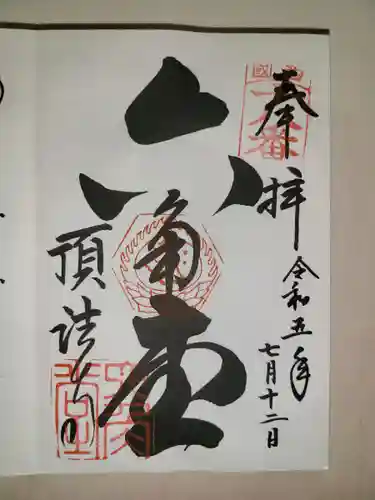 奉拝
令和五年
七月十二日
六角堂
頂法寺